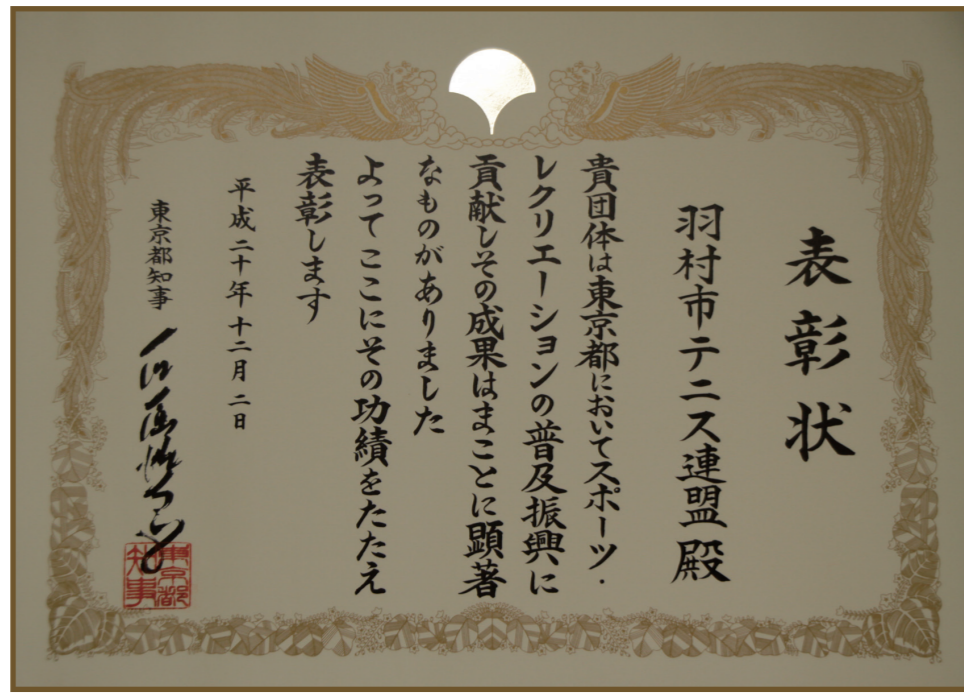 表彰状
羽村市テニス連盟殿
貴団体は東京都においてスポーツ・
レクリエーションの普及振興に
貢献しその成果はまことに顕著
なものがありました
よってここにその功績をたたえ
表彰します
平成二十年十二月二日
東京都知事
東京都
知事